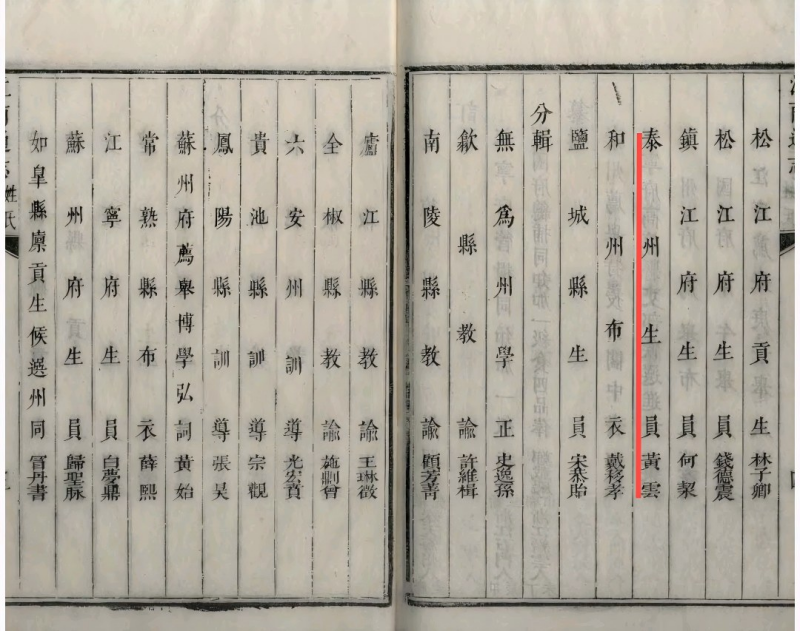 松江府貢生林子卿
松江府生員錢德震
鎮江府生員何絜
泰州生員黃雲
和州布衣戴移孝
鹽城縣生員宋恭貽
分輯
無爲州學正史逸孫
歙縣教諭許維楫
南陵縣教諭顧芳菁
廬江縣教諭王琳徵
全椒縣教諭施曾
六安州訓導光宏賁
貴池縣訓導宗觀
鳳陽縣訓導張昊
蘇州府薦舉博學弘詞黃始
常熟縣布衣薛熙
江寧府生員白夢鼎
蘇州府生員歸聖脉
如皋縣廩貢生候選州同冒丹書
姓氏